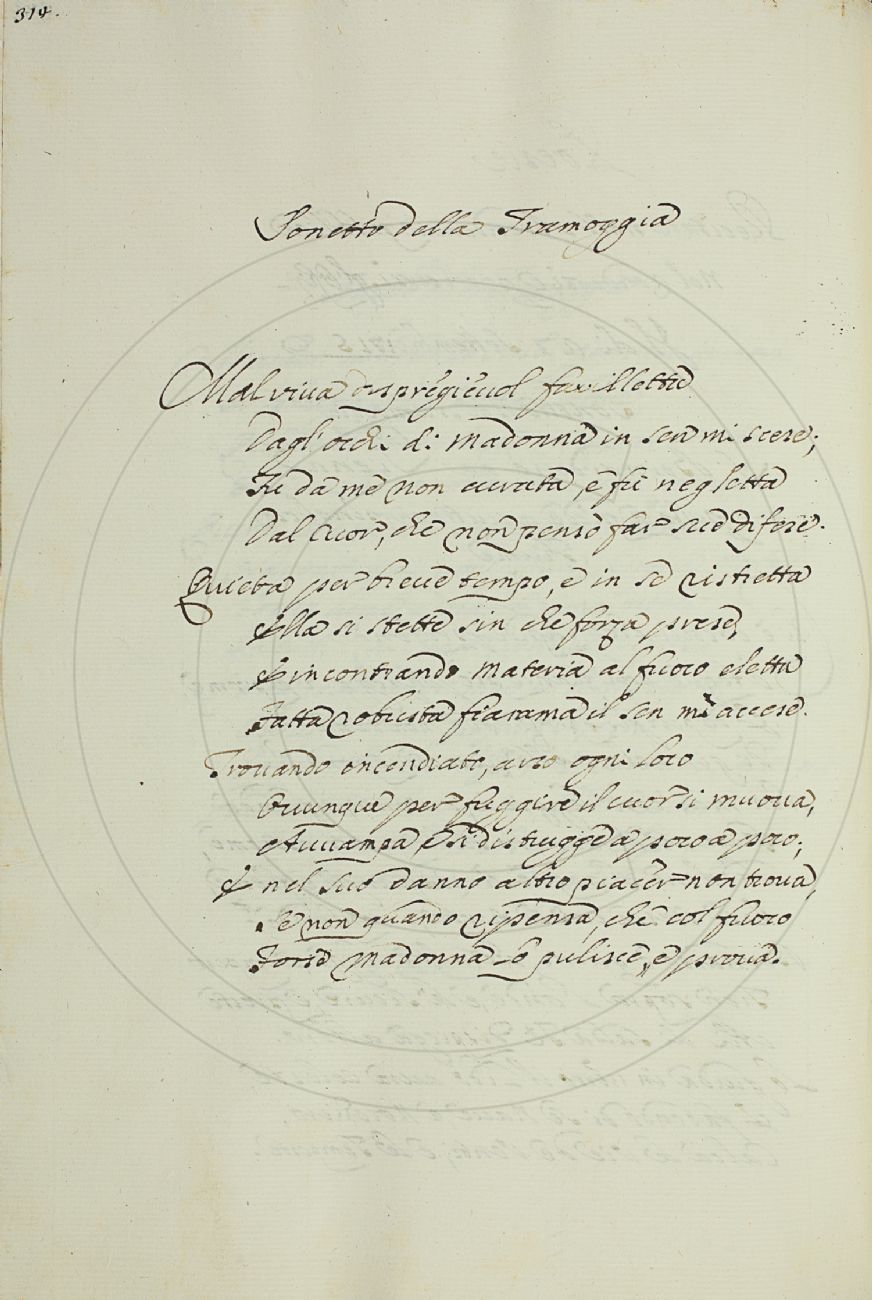 314.
Sonetto della Tramoggia
Mal viva dispregievol favilletta
Dagl'occhi di Madonna in sen mi scese;
Fu da me non curata, e fu negletta
Dal cuor, che non pensò far sue difese.
Quieta per breve tempo, e in se ristretta
Ella si stette sin che forza prese,
E incontrando materia al fuoco eletta
Fatta robusta fiamma il sen mi accese.
Trovando incendiato, arso ogni loco
Ovunque per fuggire il cuor si muova,
Avvampa, e si distrugge a poco a poco;
E nel suo danno altro piacer non trova,
Se non quando ripensa, che col fuoco
Forse Madonna lo pulisce, e prova.